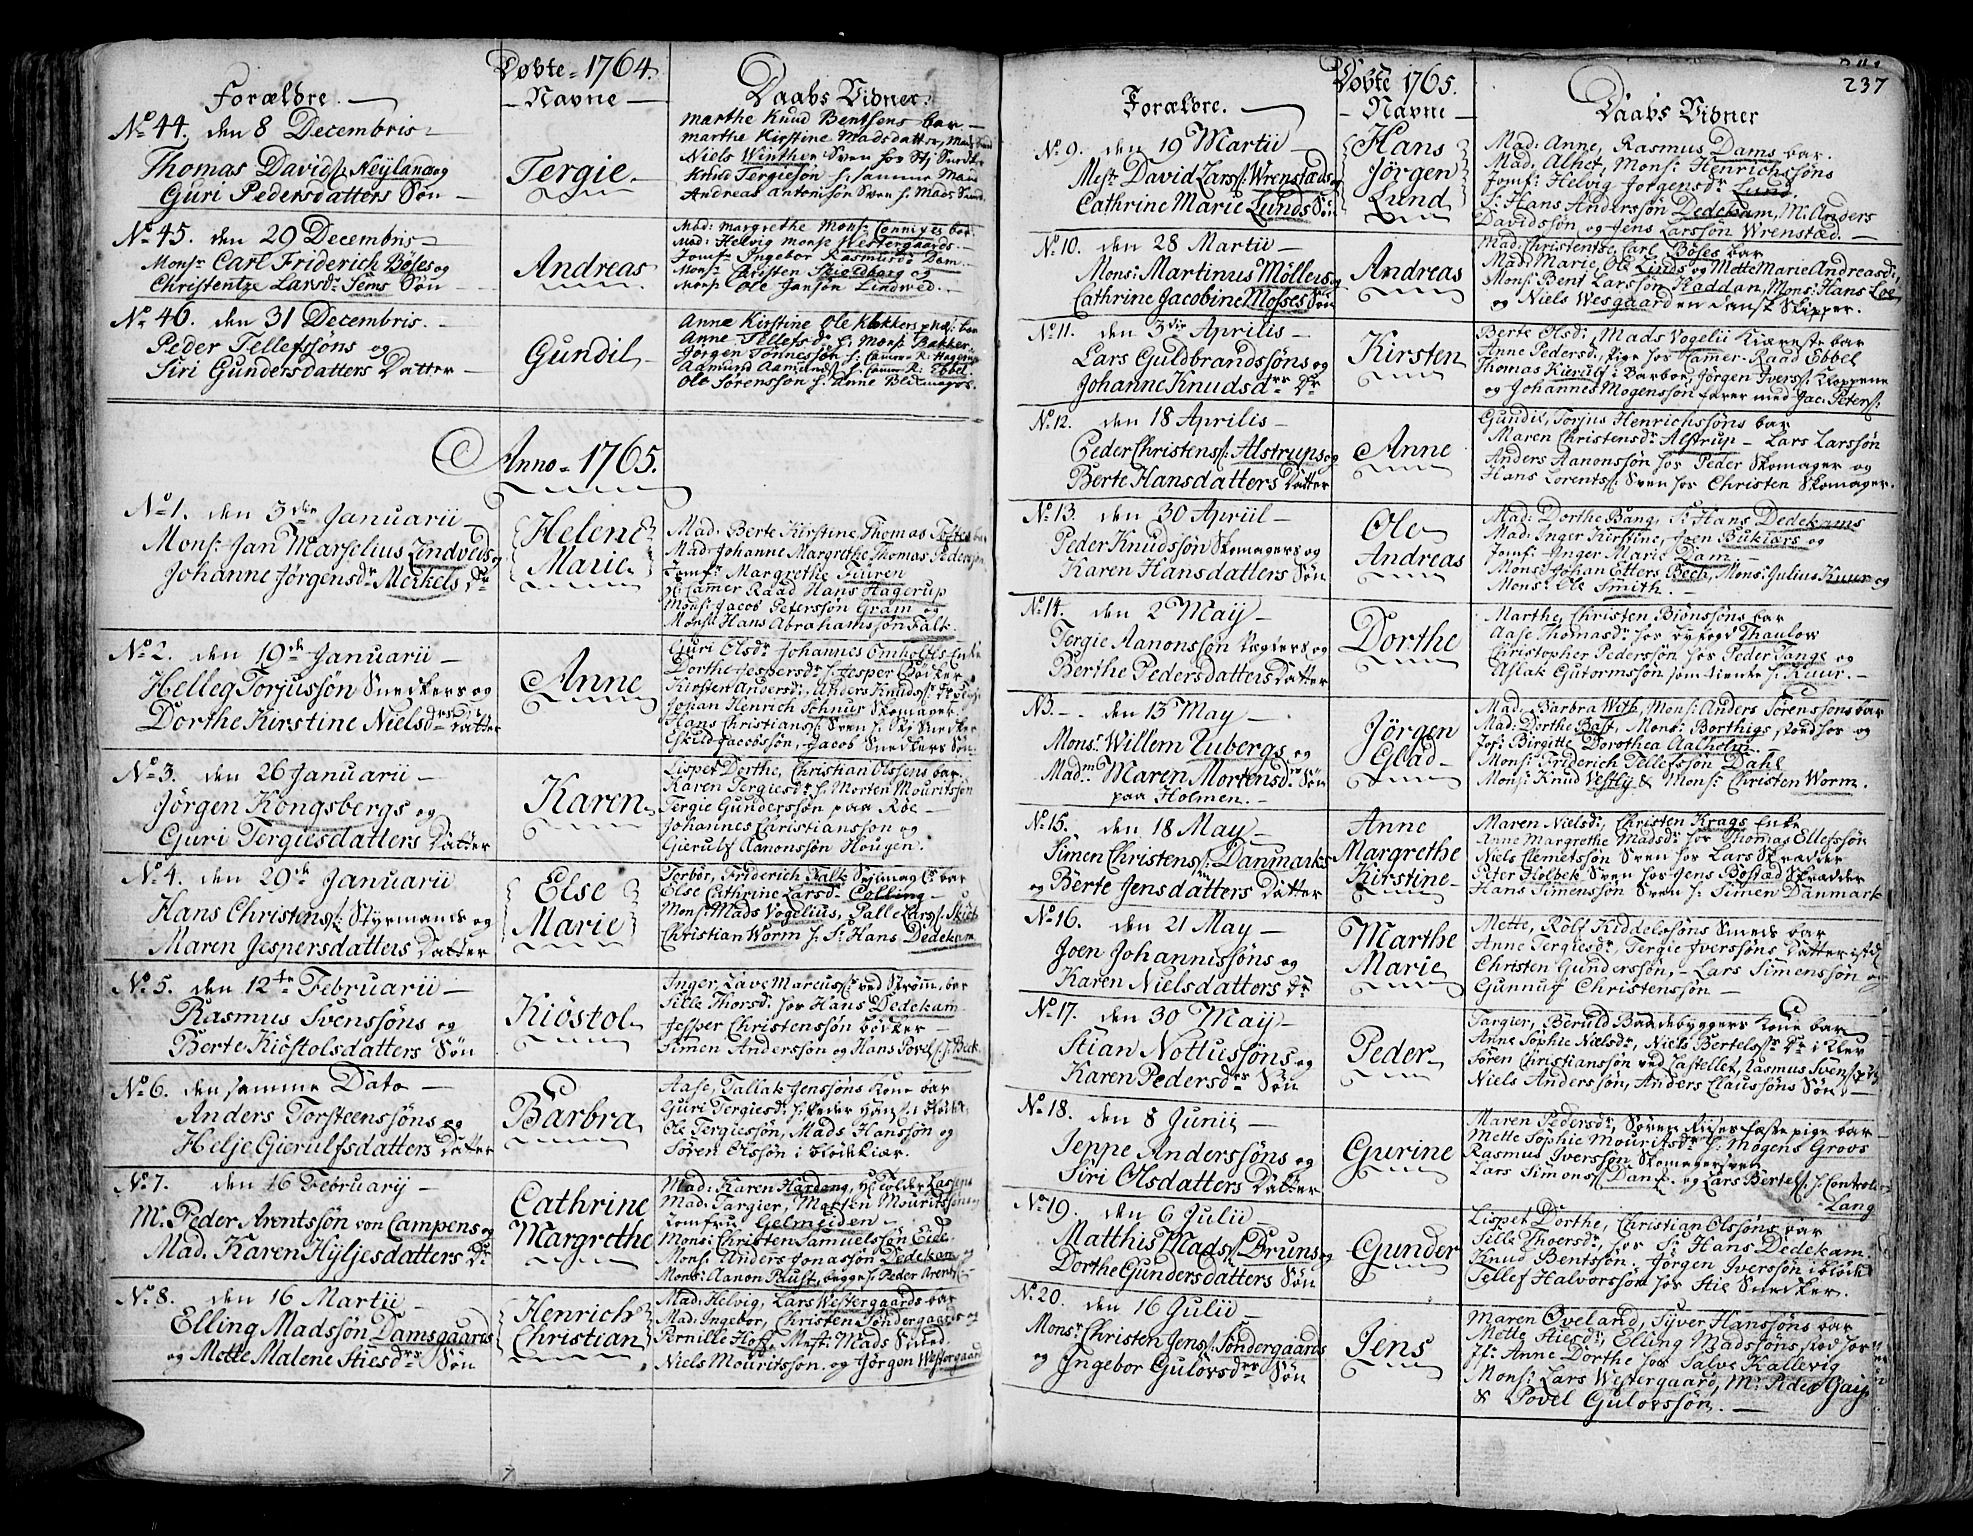 Døbte 1764.
Forældre. Navne Daabs Vidner.
No 44. den 8 Decembris
Thomas Davids: Neylands og
Guri Pedersdatters Søn
Tergie
Marthe Knud Bentsens bar
Marthe Kirstine Madsdatter,
Niels Winther Sven hos
Knud Tergiesøn h. samme Mand
Andreas Antonisøn Sven h. Mads
No 45. den 29 Decembris
Monsr Carl Friderich Böses og
Christentze Larsdr Jems Søn
Andreas
Mad: Margrethe Mons: bar
Mad: Helvig Monsr Westergaards
Jomf: Ingebor Rasmusdr Dam
Monsr Christen Skieldberg og
Monsr Ole Jansøn Lindwed.
No 46. den 31 Decembris.
Peder Tellefssøns og
Siri Gundersdatters Datter
Gundil
Anne Kirstine Ole Klokkers bar
Anne Tellefsdr h: Monsr Bakker
Jørgen Tønnessøn h: Camer R: Hagerup
Aamund Aamunds: h: Camer R: Ebbel
Ole Sørenssøn h: Anne
Anno 1765.
No 1. den 3die Januarii
Mons: Jan Marselius Lindveds og
Johanne Jørgensdr Merkels Dr
Helene
Marie
Mad: Berte Kirstine Thomas bar
Mad: Johanne Margrethe Thomas Pedersøn
Jomfr: Margrethe Fiuren
Hr Camer Raad Hans Hagerup
Mons: Jacob Peterssøn Gram og
Mons: Hans Abrahamssøn Falk.
No 2. den 19de Januarii
Helleg Torjussøn Snedkers og
Dorthe Kirstine Nielsdrs Datter
Anne
Guri Olsdr Johannes Omholts Enke
Dorthe Jespersdr h: Jesper Bødker
Kirsten Andersdr, Anders Knuds:
Johan Henrich Schnur Skomager
Hans Christians: Sven h: Snedker
Eskild Jacobssøn, Jacob Snedkers Søn
No 3. den 26 Januarii
Jörgen Kongsbergs og
Guri Tergiesdatters Datter
Karen
Lispet Dorthe, Christian Olssøns bar
Karen Tergiesdr h: Morten Mouritssøn
Tergie Gunderssøn paa Røe
Johannes Christianssøn og
Gierulf Aanonssøn Hougen.
No 4. den 29de Januarii
Hans Christens: Styrmands og
Maren Jespersdatters Datter
Else
Marie
Torbor, Friderich Falk bar
Else Cathrine Larsdr Colling
Mons: Mads Vogelius, Palle Lars:
Christian Worm h. Sr Hans Dedekam
No 5. den 12te Februarii
Rasmus Svenssøns og
Berte Kiöstolsdatters Søn
Kiöstol
Inger, Lave Marcus: ved Strøm, bar
Sille Thorsdr hos Hans Dedekam
Jesper Christenssøn bødker
Simen Anderssøn og Hans Povels: h: Beck
No 6. den samme Dato
Anders Torsteenssöns og
Helje Gierulfsdatters Datter
Barbra
Aase, Tallak Jenssøns Kone bar
Guri Tergiesdr h. Peder Hans:
Ole Tergiessøn, Mads Hanssøn og
Søren Olssøn i Klökkiær.
No 7. den 16 Februarij
Mr Peder Arentssön von Campens og
Mad. Karen Hyljesdatters Dr
Cathrine
Margrethe
Mad: Karen Hardang,
Mad: Targier, Morten Mouritssøn
Jomfru Gelmeiden
Mons: Christen Samuelssøn Eide
Mons: Anders Jonassøn Dedekam og
Mons: Aanon Paust, begge h. Peder Arents:
No 8. den 16 Martii
Elling Madssøn Damsgaards
og Mette Malene Stiesdrs Søn
Henrich
Christian
Mad: Helvig, Lars Westergaards bar
Mad: Ingebor, Christen Søndergaards og
Pernille Hoff, Mestr Mads
Niels Mouritssøn, og Jørgen Westergaard
237
Døbte 1765.
Forældre. Navne Daabs Vidner
No 9. den 19 Martii
Mestr David Lars: Wrenstæds og
Cathrine Marie Lunds Søn
Hans
Jörgen
Lund
Mad: Anne, Rasmus Dams bar.
Mad: Alhet, Mons: Henrichssøns
Jomf: Helvig Jørgensdr Lund
Sr: Hans Anderssøn Dedekam, Mr Anders
Davidssøn og Jens Larssøn Wrenstæd.
No 10. den 28 Martii
Mons: Martinus Möllers og
Cathrine Jacobine Mosses Søn
Andreas
Mad: Christentze Carl Böses bar
Mad: Marie Ole Linds og Mette Marie Andreasdr
Mons: Bent Larssøn Haddan, Mons: Hans Loe
og Niels Wesgaard en dansk Skipper.
No 11. den 3die Aprilis
Lars Guldbrandssøns og
Johanne Knudsdtrs Dr
Kirsten
Berte Olsdr, Mads Vogelii Kiæreste bar
Anne Pedersdr, pige hos Kamer-Raad Ebbel
Thomas Kierulf: Barber, Jørgen Ivers: Kloppene
og Johannes Mogenssøn farer med Jac: Peters:
No 12. den 18 Aprilis
Peder Christens: Alstrups og
Berte Hansdatters Datter
Anne
Gundil, Torjus Henrichssøns bar
Maren Christensdr Alstrup Lars Larssøn
Anders Aanonssøn hos Peder Skomager og
Hans Lorents: Sven hos Christen Skomager.
No 13. den 30 Apriil
Peder Knudssøn Skomagers og
Karen Hansdatters Søn
Ole
Andreas
Mad: Dorthe Bang, Sr: Hans Dedekams
Mad: Inger Kirstine, Joen Bukiærs og
Jomf: Inger Marie Dam
Mons: Johan Etters Bech, Mons: Julius Kuur og
Mons: Ole Smith.
No 14. den 2 May
Tergie Aanonssøn Vægters og
Berthe Pedersdatters Datter
Dorthe
Marthe, Christen Biønssøns bar
Aase Thomasdr hos byfogd Thaulov
Christopher Pederssøn hos Peder Tange og
Aslak Gutormssøn som tiente h. Kuur.
NB. den 13 May
Monsr Willem Luberg og
Madm: Maren Mortensdrs Søn
paa Holmen.
Jörgen
Eilad
Mad. Barbra With, Mons: Anders Sørenssøns bar
Mad: Dorthe Bast, Mons: Borthigs stod hos og
Jof: Birgitte Dorothea Aalholm
Mons: Friderich Tellefssøn Dahl
Mons: Knud Vestly & Mons: Christen Worm.
No 15. den 18 May
Simen Christens: Danmarks
og Berte Jensdatters Datter
Anne
Margrethe
Kirstine
Maren Nielsdr, Christen Krags Enke
Anne Margrethe Madsdr hos Thomas Ellefssøn
Niels Clemetssøn Sven hos Lars Skrædder
Peter Holbek Sven hos Jens Bostæd Skrædder
Hans Simenssøn Sven h: Simen Danmark
No 16. den 21 May
Joen Johannissöns og
Karen Nielsdatters Dr
Marthe
Marie
Mette, Rolf Kiddelssøns Smeds bar
Anne Tergiesdr, Tergie Iverssøns Datter
Christen Gunderssøn, Lars Simenssøn og
Gunnulf Christenssøn
No 17. den 30 May
Stian Nottussöns og
Karen Pedersdrs Søn
Peder
Targier, Beruld Baadebyggers Kone bar
Anne Sophie Nielsdr, Niels Bertels: Dr i Klev
Søren Christianssøn ved Castellet, Rasmus Svens:
Niels Anderssøn, Anders Claussøns Søn
No 18. den 8 Junii
Jeppe Anderssöns og
Siri Olsdatters Datter
Gurine
Maren Pedersdr, Søren Riises fæste pige bar
Mette Sophie Mouritsdr h. Mogens Groos
Rasmus Iverssøn Skomagersven
Lars Simons: Danf. og Lars Bertels: h. Controleur
Lang
No 19. den 6 Julii
Matthis Mads: Bruns og
Dorthe Gundersdatters Søn
Gunder
Lispet Dorthe, Christian Olssøns bar
Sille Thoersdr, hos Sr: Hans Dedekam
Knud Bentssøn, Jörgen Iverssøn i Klökk:
Tellef Halvorssøn hos Stie Snedker.
No 20. den 16 Julii
Monsr Christen Jens: Söndergaards
og Ingebor Gulovsdrs Søn
Jens
Maren Øveland, Syver Hanssøns bar
Mette Stiesdr, Elling Madssøns stod hos
Jf: Anne Dorthe hos Salve Kallevig
Mons: Lars Westergaard, Mr Peder Gaip
& Povel Gulovssøn.